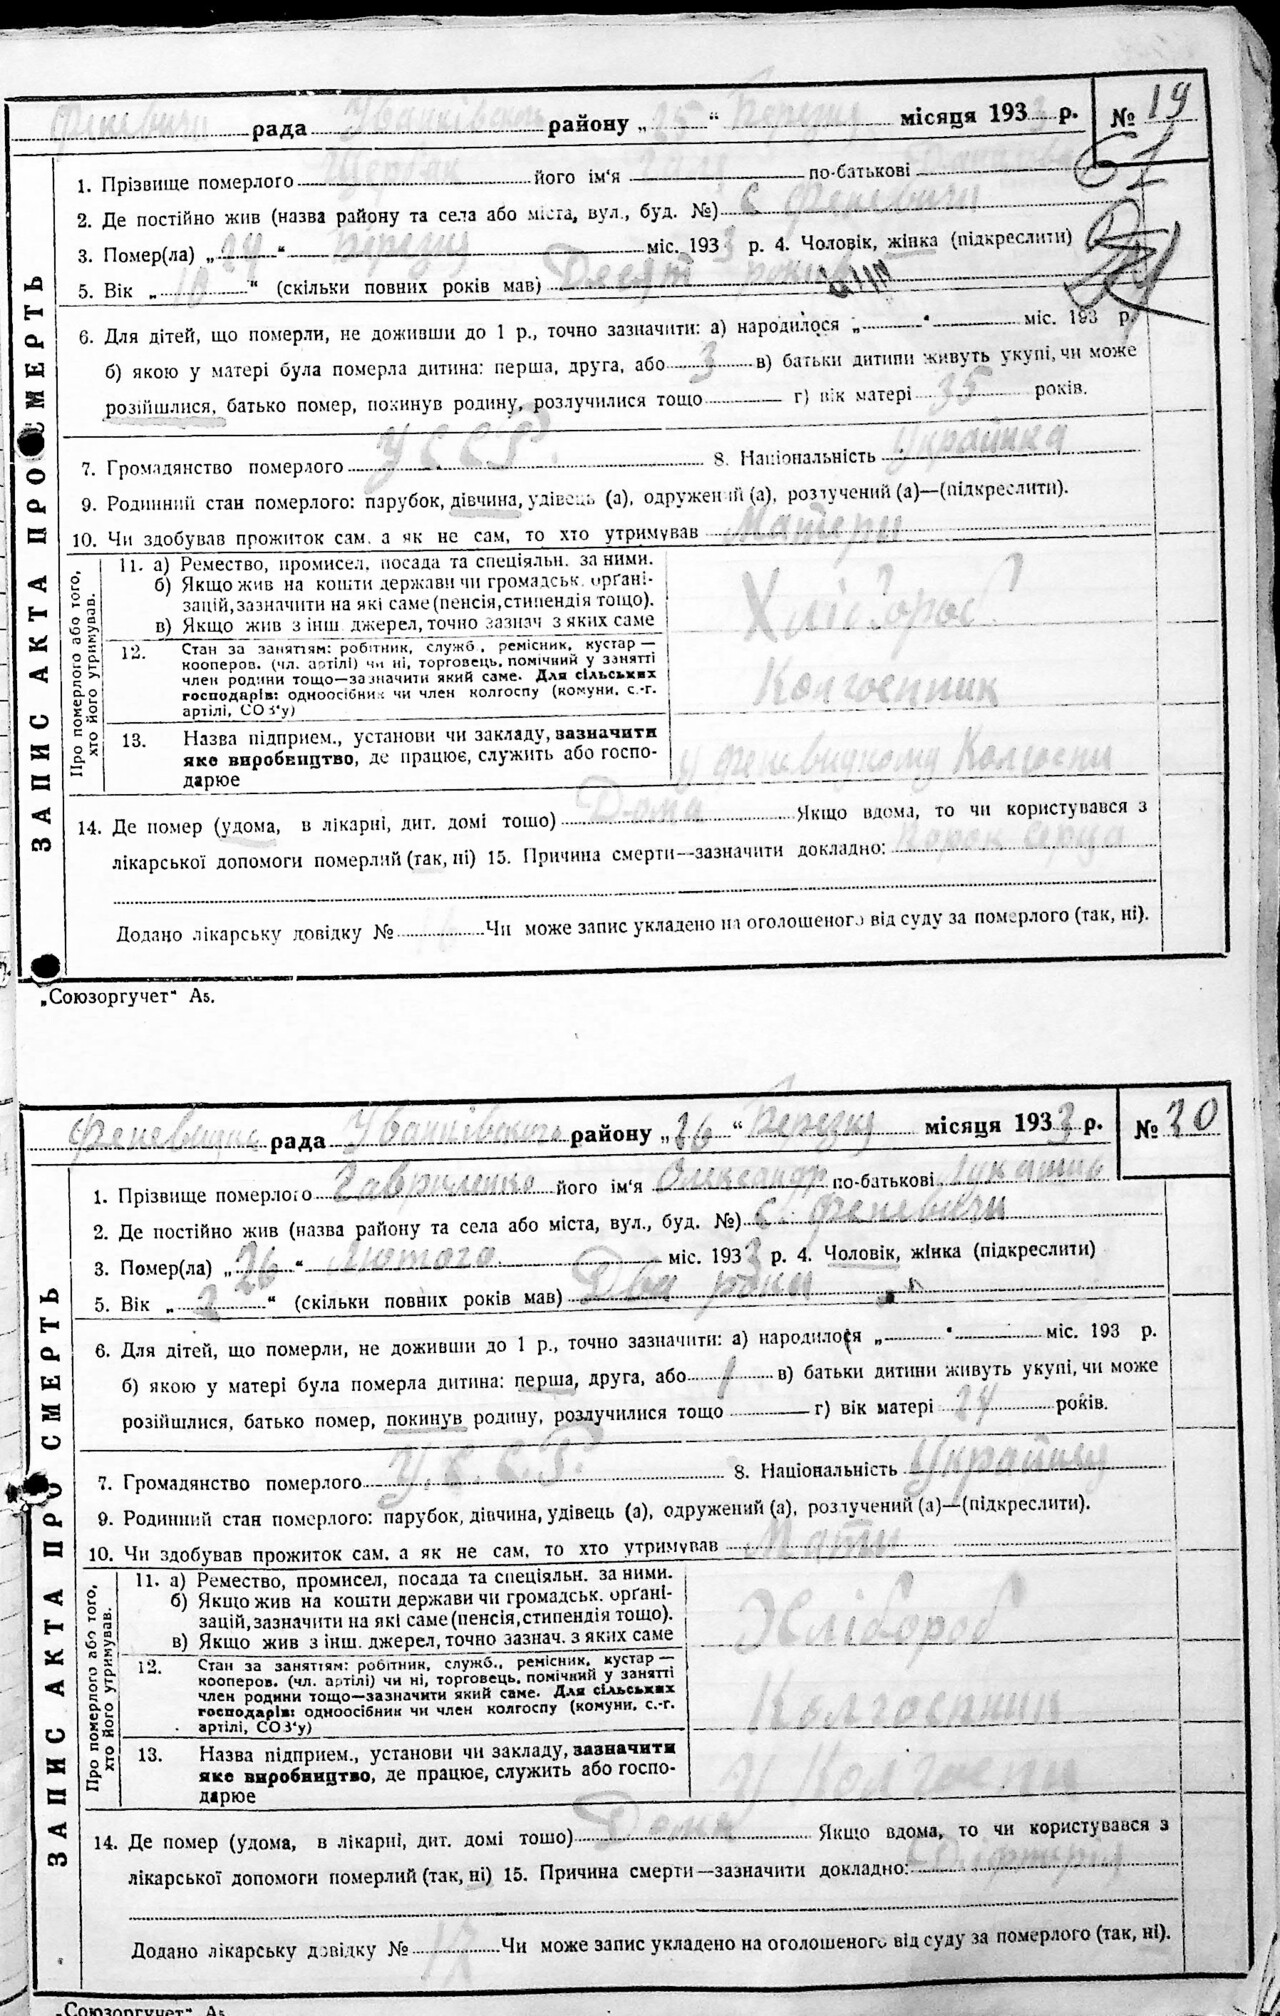 Феневичи рада Иванківського району „25“ Березня місяця 1933 р. № 19
61
1. Прізвище померлого його ім'я Галя по-батькові
2. Де постійно жив (назва району та села або міста, вул., буд. №) с Феневичи
3. Помер(ла) „24“ Березня міс. 1933 р. 4. Чоловік, жінка (підкреслити)
5. Вік „10“ (скільки повних років мав) Десят років
6. Для дітей, що померли, не доживши до 1 р., точно зазначити: а) народилося „ “ міс. 193 р.
б) якою у матері була померла дитина: перша, друга, або 3 в) батьки дитини живуть укупі, чи може
розійшлися, батько помер, покинув родину, розлучилися тощо г) вік матері 35 років.
7. Громадянство померлого УССР. 8. Національність Украинка
9. Родинний стан померлого: парубок, дівчина, удівець (а), одружений (а), розлучений (а)—(підкреслити).
10. Чи здобував прожиток сам, а як не сам, то хто утримував Матери
ЗАПИС АКТА ПРО СМЕРТЬ
Про померлого або того, хто його утримував.
11. а) Ремество, промисел, посада та спеціяльн. за ними.
б) Якщо жив на кошти держави чи громадськ. орґані-
зацій, зазначити на які саме (пенсія, стипендія тощо).
в) Якщо жив з інш. джерел, точно зазнач. з яких саме
Хлібороб
12. Стан за заняттям: робітник, служб., ремісник, кустар—
кооперов. (чл. артілі) чи ні, торговець, помічний у занятті
член родини тощо—зазначити який саме. Для сільських
господарів: одноосібник чи член колгоспу (комуни, с.-г.
артілі, СОЗ'у)
Колгоспник
13. Назва підприєм., установи чи закладу, зазначити
яке виробництво, де працює, служить або госпо-
дарює
у Феневицкому Колгоспи
14. Де помер (удома, в лікарні, дит. домі тощо) Дома Якщо вдома, то чи користувався з
лікарської допомоги померлий (так, ні) 15. Причина смерти—зазначити докладно: Порок серца
Додано лікарську довідку № Чи може запис укладено на оголошеного від суду за померлого (так, ні).
„Союзоргучет“ А5.
рада Иванківського району „26“ Березня місяця 1933 р. № 20
1. Прізвище померлого Гавриленко його ім'я Олександр по-батькові
2. Де постійно жив (назва району та села або міста, вул., буд. №) с. Феневичи
3. Помер(ла) „26“ Лютого міс. 1933 р. 4. Чоловік, жінка (підкреслити)
5. Вік „2“ (скільки повних років мав) Два роки
6. Для дітей, що померли, не доживши до 1 р., точно зазначити: а) народилося „ “ міс. 193 р.
б) якою у матері була померла дитина: перша, друга, або 1 в) батьки дитини живуть укупі, чи може
розійшлися, батько помер, покинув родину, розлучилися тощо г) вік матері 24 років.
7. Громадянство померлого У.С.С.Р. 8. Національність Украйнец
9. Родинний стан померлого: парубок, дівчина, удівець (а), одружений (а), розлучений (а)—(підкреслити).
10. Чи здобував прожиток сам, а як не сам, то хто утримував Мати
ЗАПИС АКТА ПРО СМЕРТЬ
Про померлого або того, хто його утримував.
11. а) Ремество, промисел, посада та спеціяльн. за ними.
б) Якщо жив на кошти держави чи громадськ. орґані-
зацій, зазначити на які саме (пенсія, стипендія тощо).
в) Якщо жив з інш. джерел, точно зазнач. з яких саме
Хлібороб
12. Стан за заняттям: робітник, служб., ремісник, кустар—
кооперов. (чл. артілі) чи ні, торговець, помічний у занятті
член родини тощо—зазначити який саме. Для сільських
господарів: одноосібник чи член колгоспу (комуни, с.-г.
артілі, СОЗ'у)
Колгоспник
13. Назва підприєм., установи чи закладу, зазначити
яке виробництво, де працює, служить або госпо-
дарює
У Колгоспи
14. Де помер (удома, в лікарні, дит. домі тощо) Дома Якщо вдома, то чи користувався з
лікарської допомоги померлий (так, ні) 15. Причина смерти—зазначити докладно: Дифтерия
Додано лікарську довідку № 17 Чи може запис укладено на оголошеного від суду за померлого (так, ні).
„Союзоргучет“ А5.